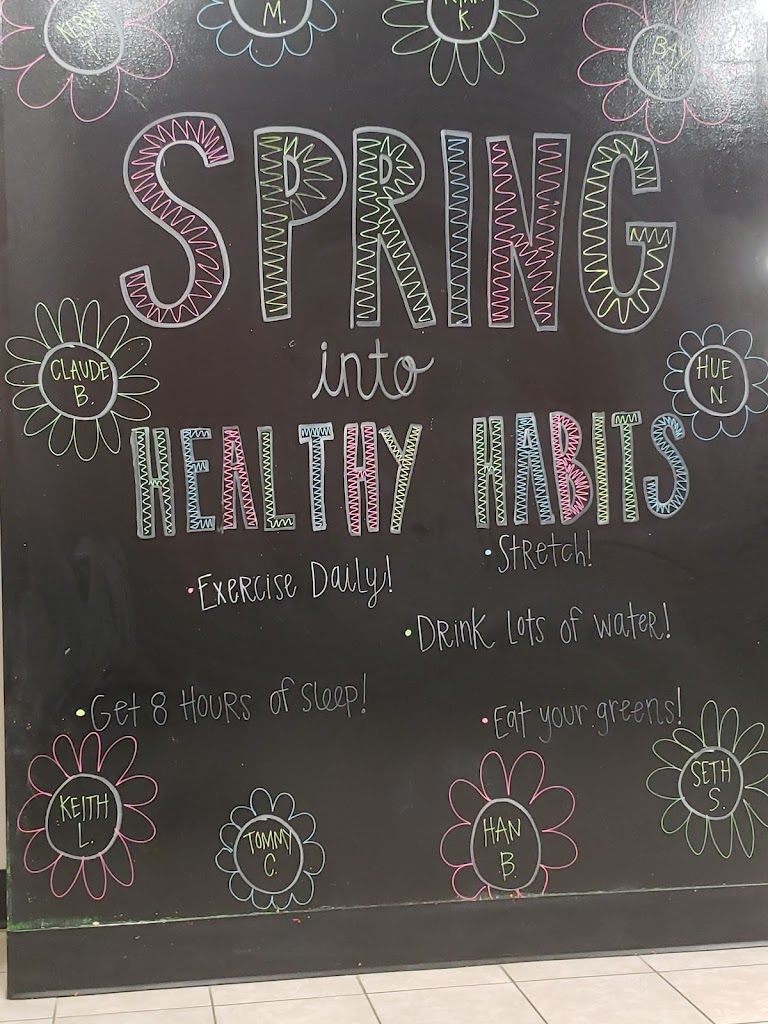 M.
K.
BAY
N.
SPRING
into
CLAUDE
B.
HUE
N.
HEALTHY HABITS
• Stretch!
• Exercise Daily!
• Drink lots of water!
• Get 8 Hours of sleep!
• Eat your greens!
KEITH
L.
TOMMY
C.
HAN
B.
SETH
S.